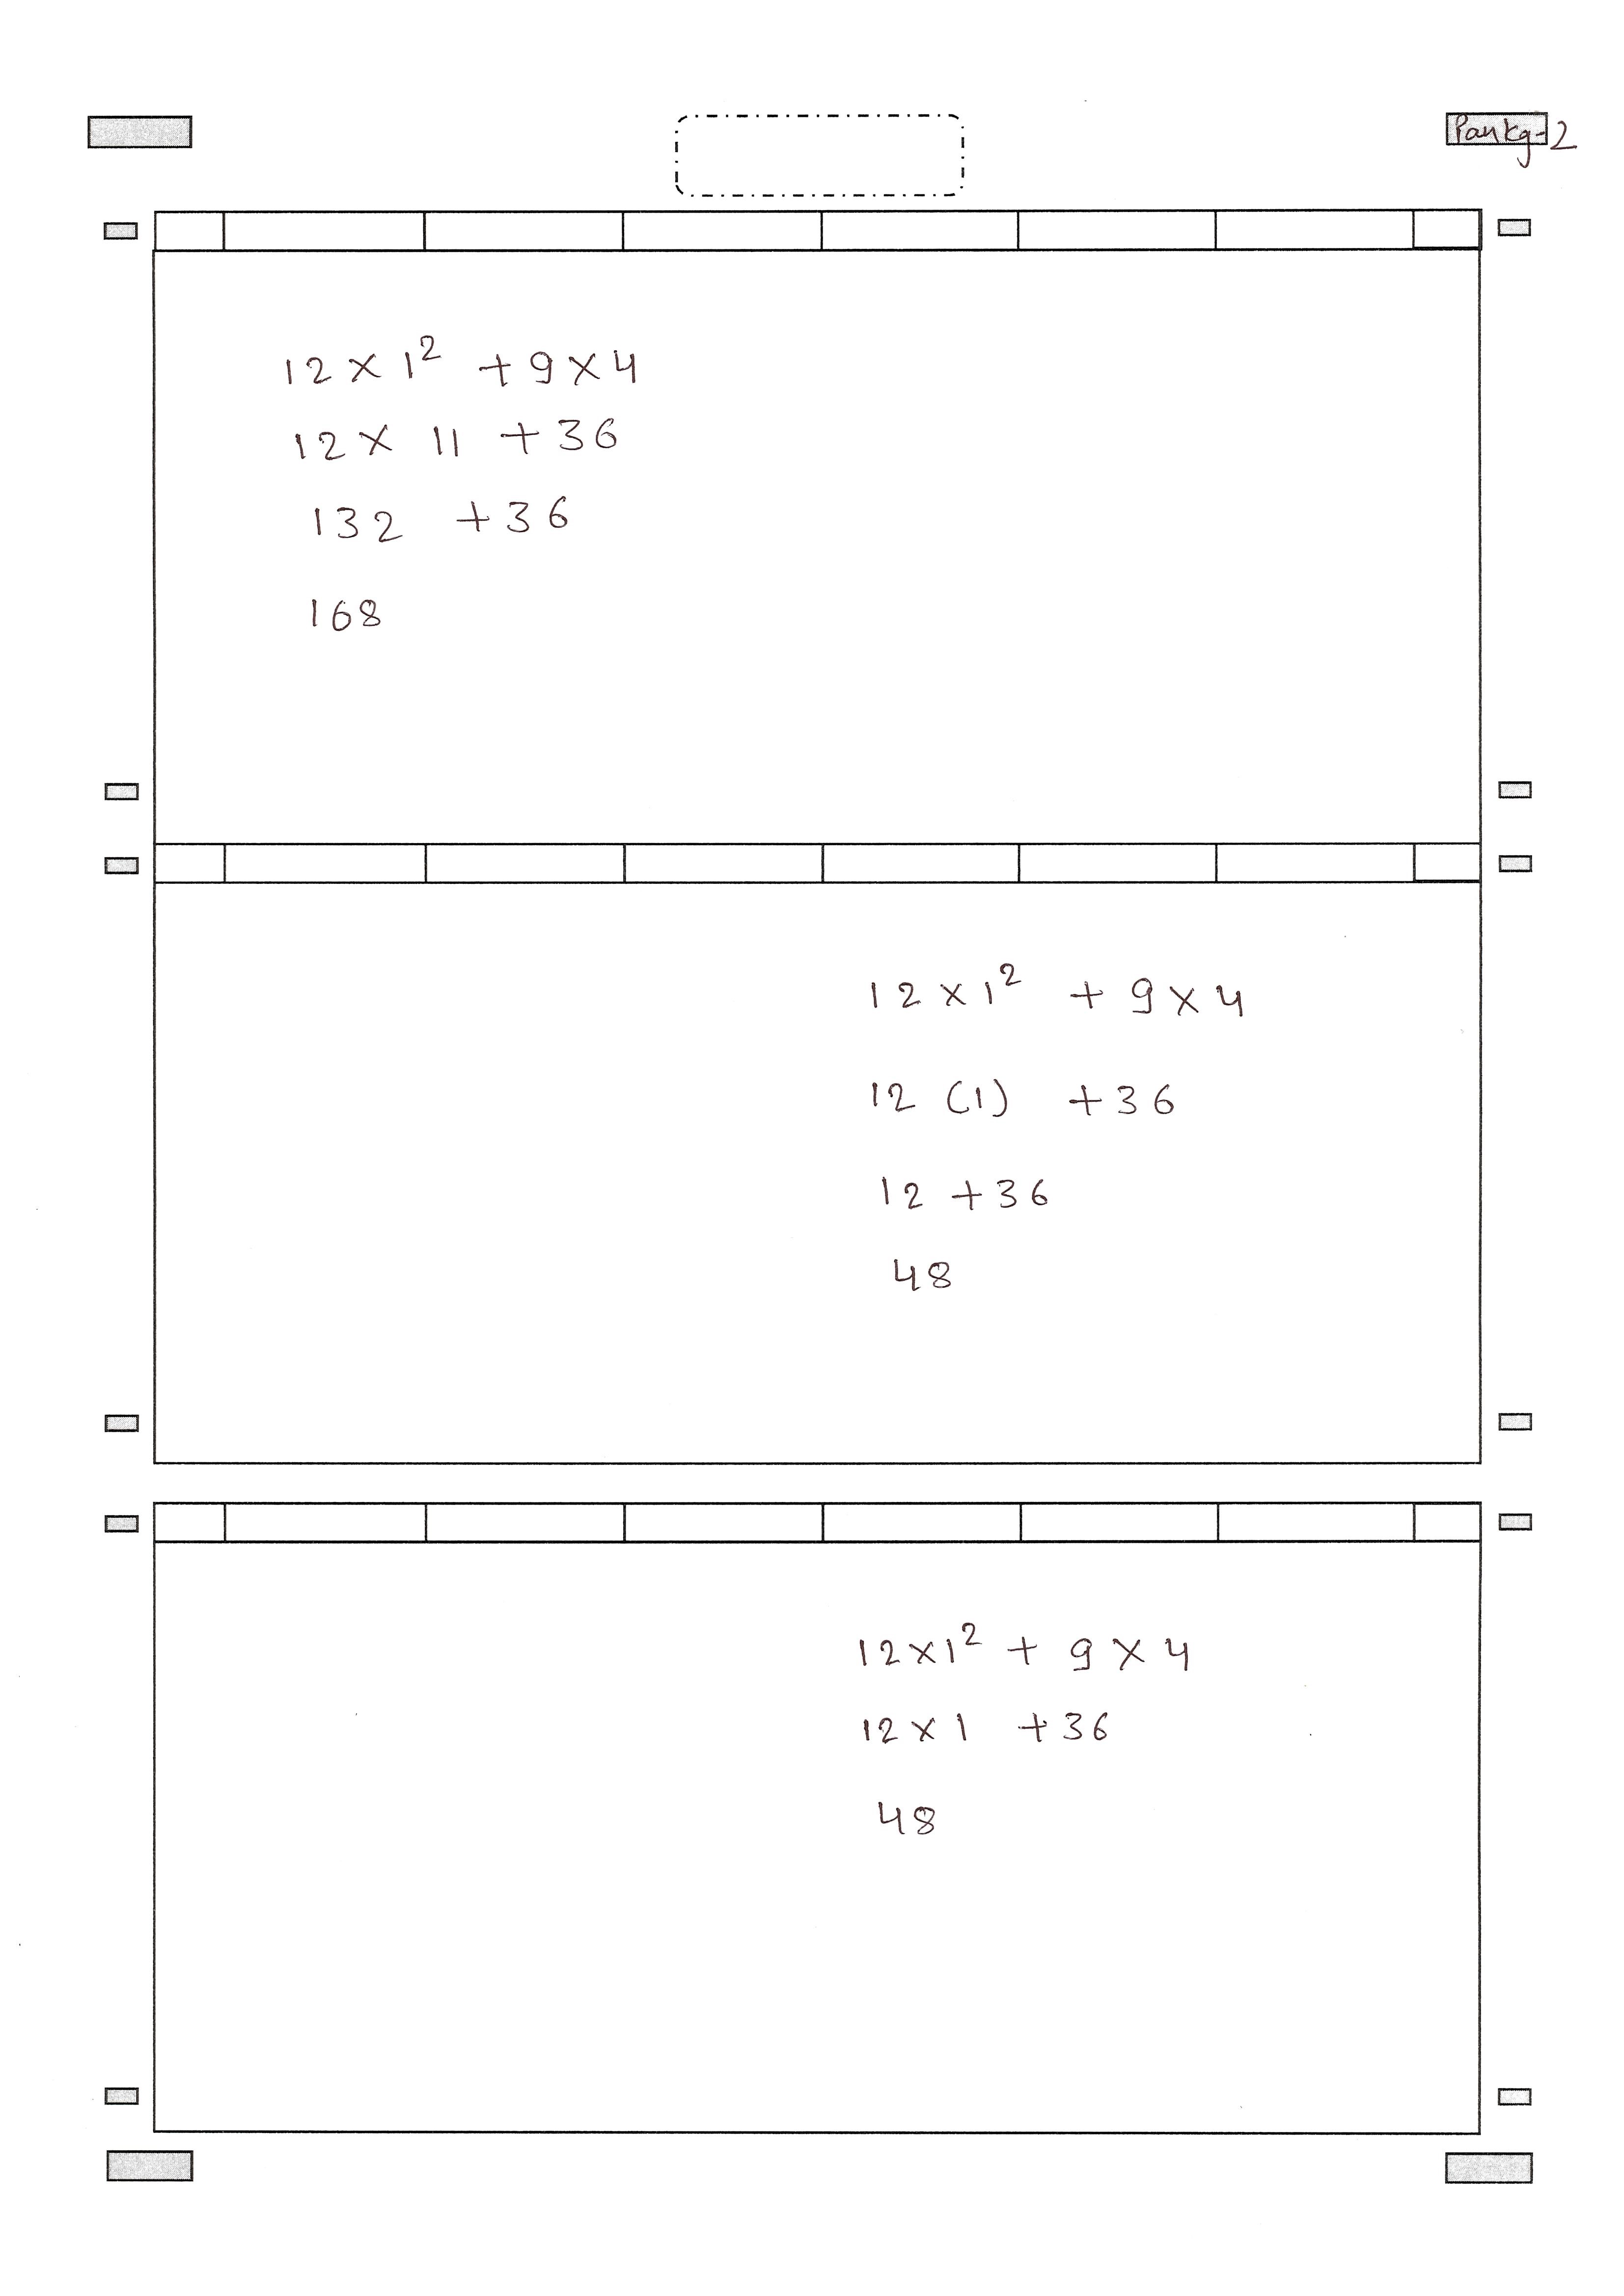 Pankg-2
12 × 1² + 9 × 4
12 × 11 + 36
132 + 36
168
12 × 1² + 9 × 4
12 (1) + 36
12 + 36
48
12 × 1² + 9 × 4
12 × 1 + 36
48